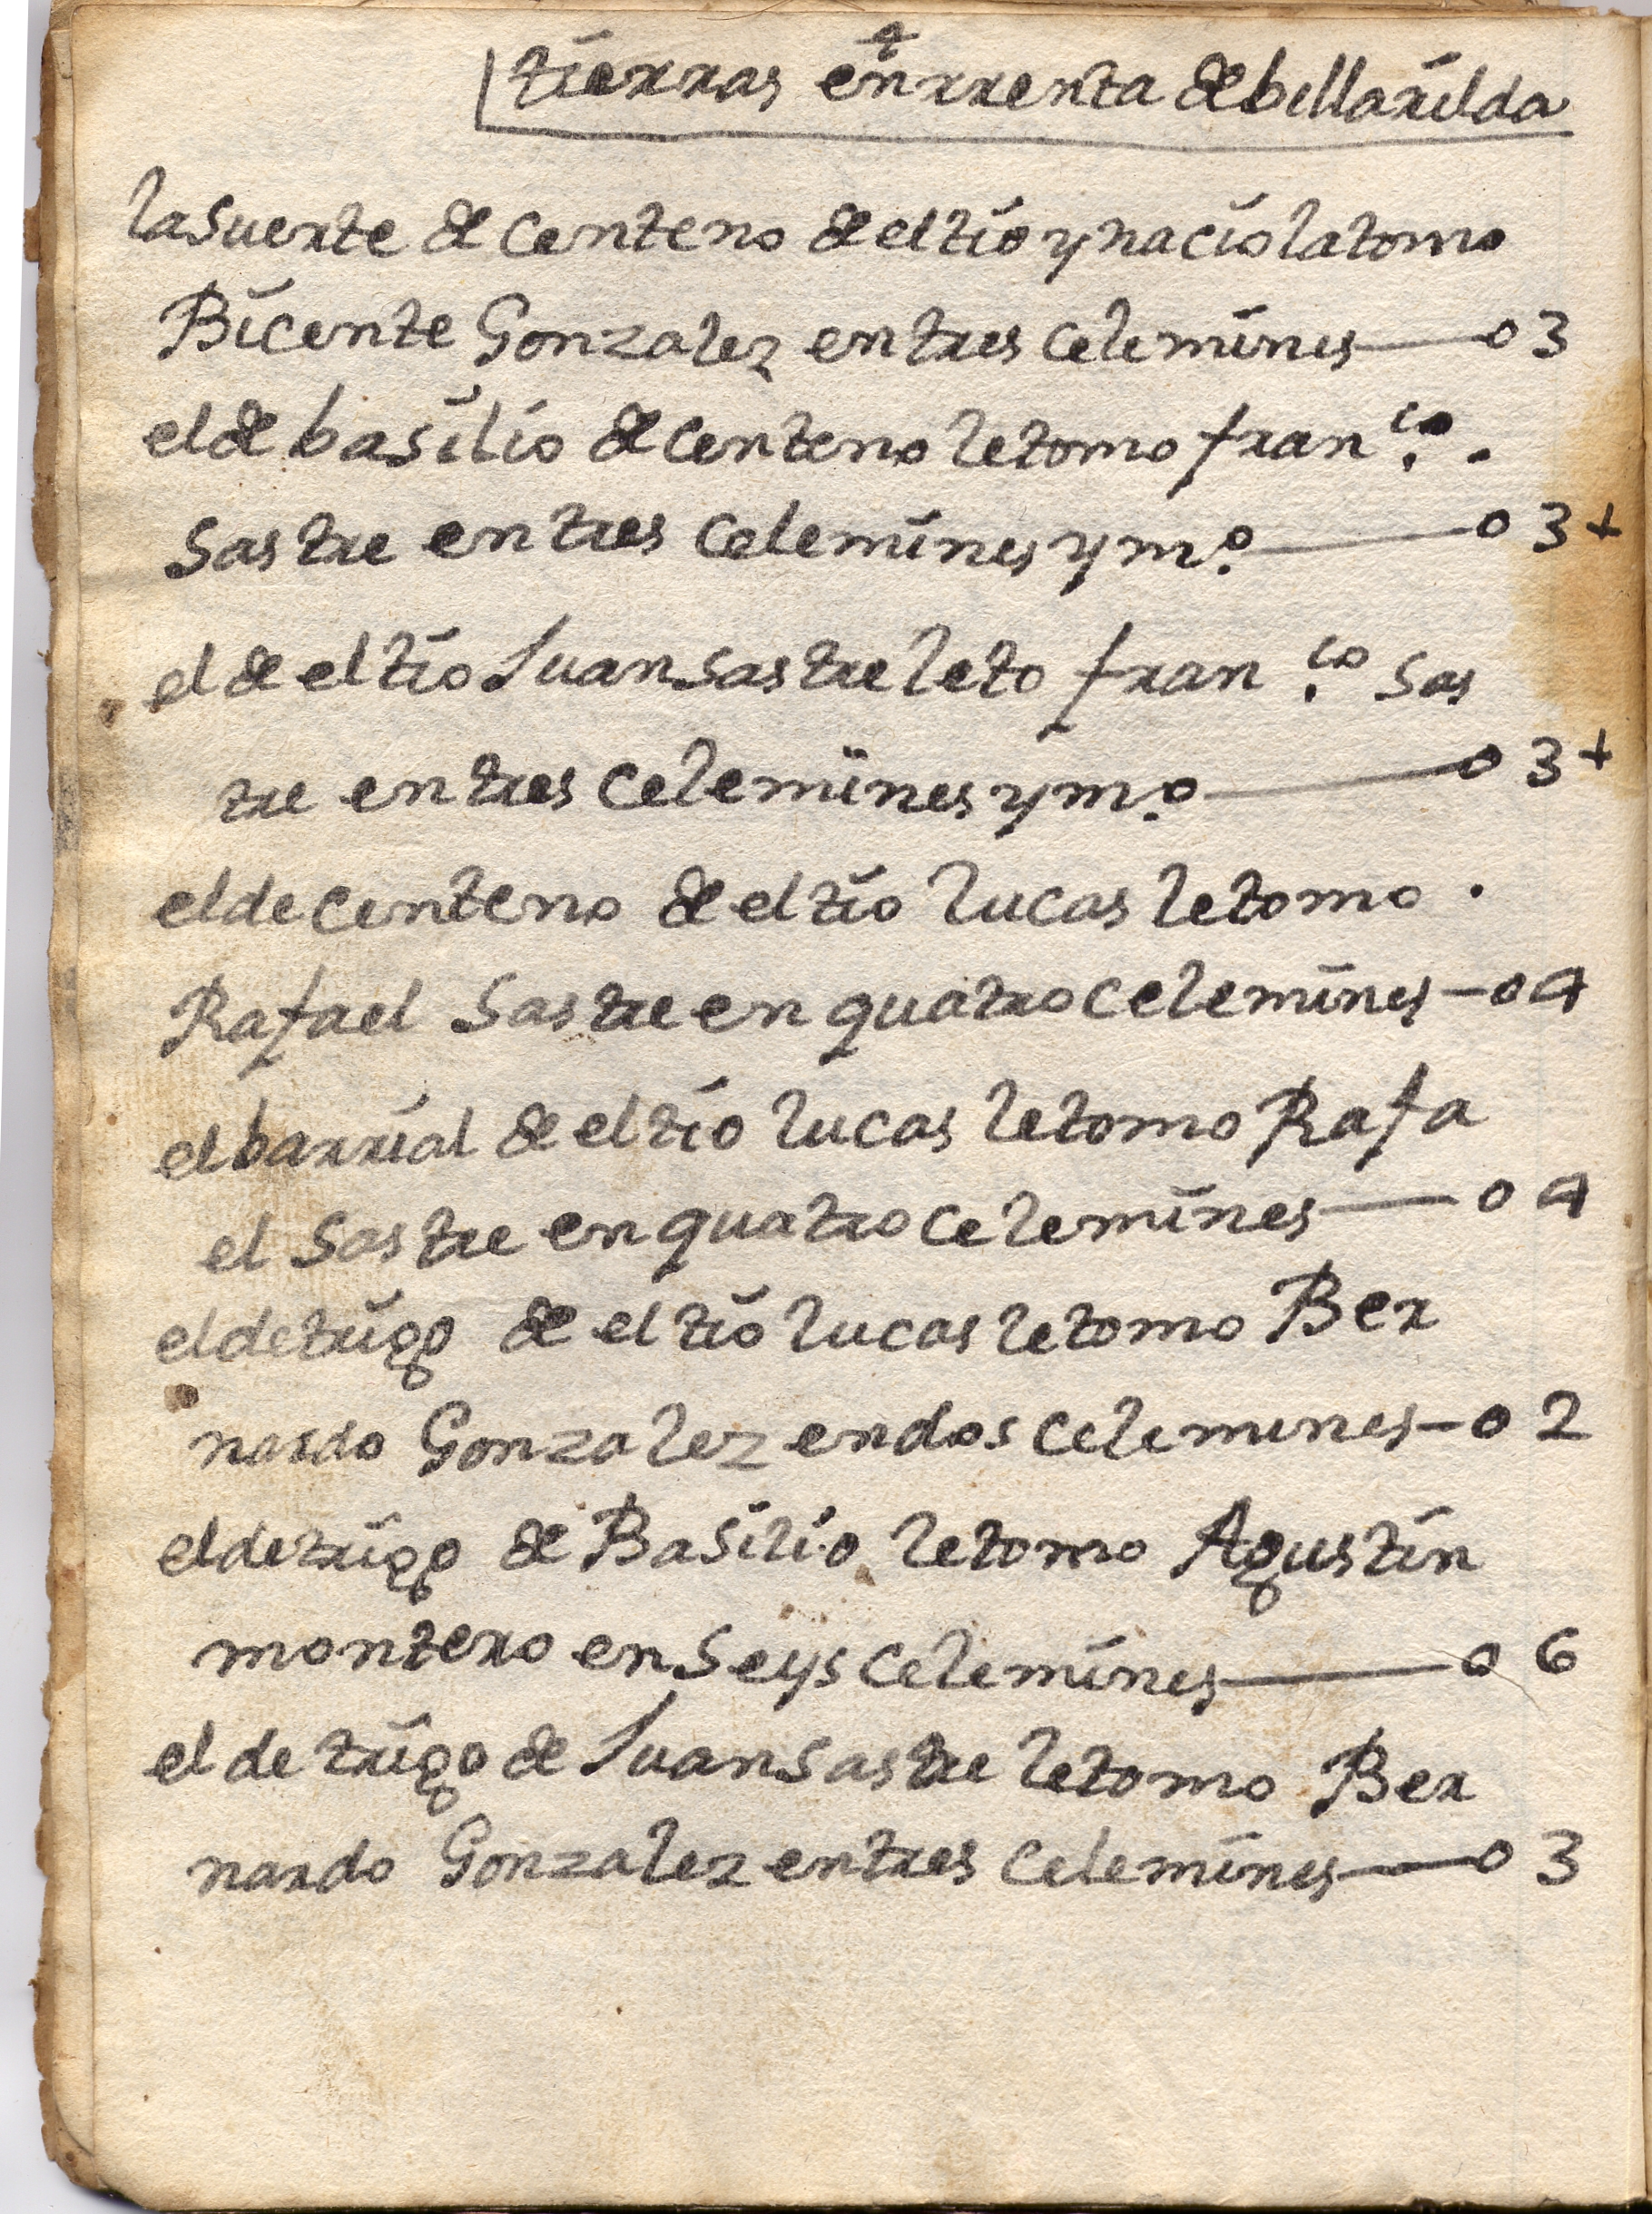 ✝
tierras en rrenta de billarilda
la Suerte de Centeno de el tio ynacio la tomo
Bicente Gonzalez en tres Celemines — o 3
el de basilio de Centeno le tomo fran.co .
Sastre en tres Celemines y m.o — o 3 +
el de el tio Juan Sastre le to fran.co Sas
tre en tres Celemines y m.o — o 3 +
el de Centeno de el tio lucas le tomo .
Rafael Sastre en quatro Celemines — o 4
el barrial de el tio lucas le tomo Rafa
el Sastre en quatro Celemines — o 4
el de trigo de el tio lucas le tomo Ber
nardo Gonzalez en dos Celemines — o 2
el de trigo de Basilio le tomo Agustin
montero en Seys Celemines — o 6
el de trigo de Juan Sastre le tomo Ber
nardo Gonzalez en tres Celemines — o 3